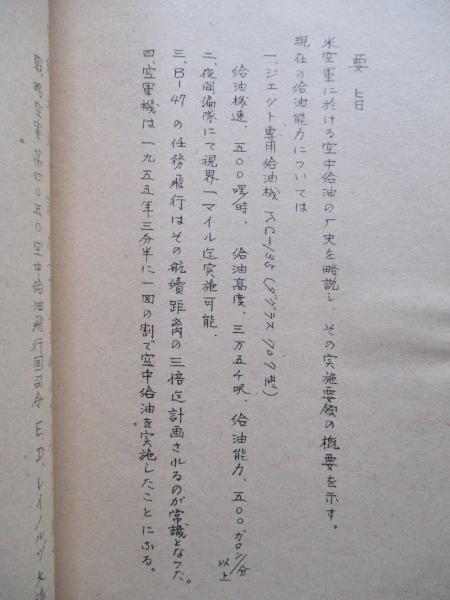 要旨
米空軍に於ける空中給油の厂史を略説し、その実施要領の概要を示す。
現在の給油能力については
一、ジェット専用給油機 KC-135 (ダグラス 707 型)
給油機速、五〇〇哩/時、 給油高度、三万五千呎、給油能力、五〇〇ガロン/分以上
二、夜間編隊にて視界一マイル迄実施可能、
三、B-47 の任務飛行はその航続距離の三倍迄計画されるのが常識となった。
四、空軍機は一九五五年三分半に一回の割で空中給油を実施したことになる。
略空軍第四〇五〇空中給油飛行団司令 E.D.レイノルヅ大